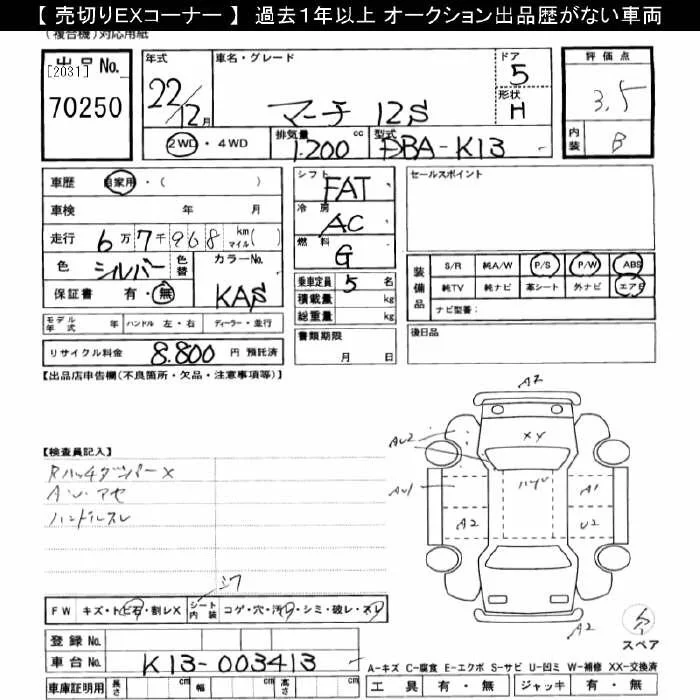 【 売切りEXコーナー 】 過去1年以上 オークション出品歴がない車両
(複合機)対応用紙
出品No.
[2031]
70250
年式
22/12月
車名・グレード
マーチ 12S
ドア
5
形状
H
評価点
3.5
内装
B
2WD・4WD
排気量 cc
1.200
型式
DBA-K13
車歴 自家用・( )
車検 年 月
走行 6万7千968 km マイル( )
色 シルバー 色替
カラーNo.
KAS
保証書 有・無
モデル年式 年 ハンドル 左・右 ディーラー・並行
リサイクル料金 8.800 円 預託済
シフト
FAT
冷房
AC
燃料
G
乗車定員 5 名
積載量 kg
総重量 kg
書類期限
月 日
セールスポイント
装備品
S/R 純A/W P/S P/W ABS
純TV 純ナビ 革シート 外ナビ エアB
ナビ型番:
後日品
【出品店申告欄(不良箇所・欠品・注意事項等)】
【検査員記入】
Rハッチダンパー×
AW・アセ
ハンドルスレ
A2
AU2
XY
AU1
ハンレ
A1
A2
U2
A2
シワ
FW キズ・トビ石・割レX シート内装 コゲ・穴・汚レ・シミ・破レ・スレ
登録No.
車台No. K13-003413
車庫証明用 長さ cm 幅 cm 高さ cm
スペア
A-キズ C-腐食 E-エクボ S-サビ U-凹ミ W-補修 XX-交換済
工具 有・無 ジャッキ 有・無